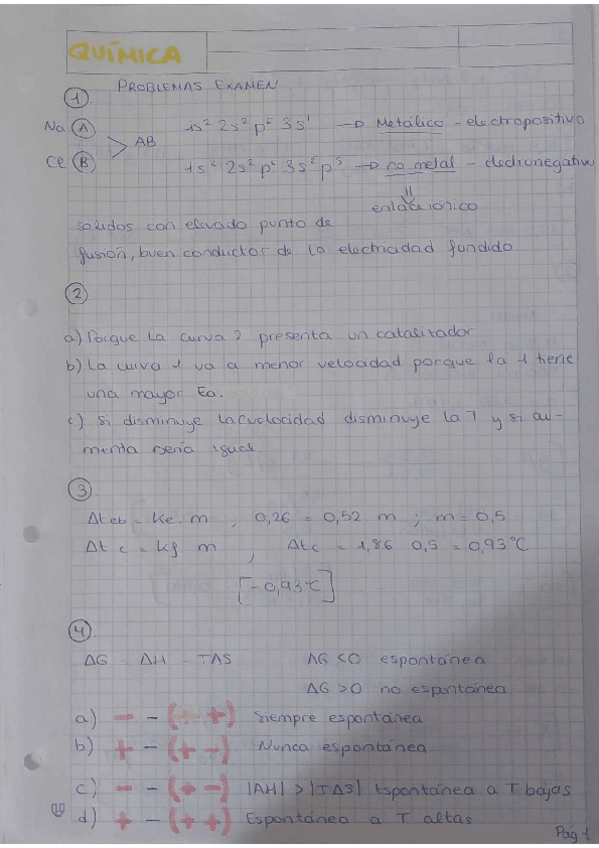 QUÍMICA
PROBLEMAS EXAMEN
①
Na Ⓐ 1s² 2s² p⁶ 3s¹ → Metálico - electropositivo
> AB
Cl Ⓑ 1s² 2s² p⁶ 3s² p⁵ → no metal - electronegativ
enlace iónico
solidos con elevado punto de
fusión, buen conductor de la electricidad fundido
②
a) Porque la curva 2 presenta un catalizador
b) La curva 1 va a menor velocidad porque la 1 tiene
una mayor Ea.
c) Si disminuye la velocidad disminuye la T y si au-
menta sería igual.
③
Δteb = Ke. m ; 0,26 = 0,52 m ; m = 0,5
Δtc = Kf m ; Δtc = 1,86 0,5 = 0,93°C
[-0,93°C]
④
ΔG = ΔH - TΔS ΔG < 0 espontánea
ΔG > 0 no espontánea
a) - - (+ +) Siempre espontánea
b) + - (+ -) Nunca espontánea
c) - - (+ -) |ΔH| > |TΔS| Espontánea a T bajas
d) + - (+ +) Espontánea a T altas
Pág 1